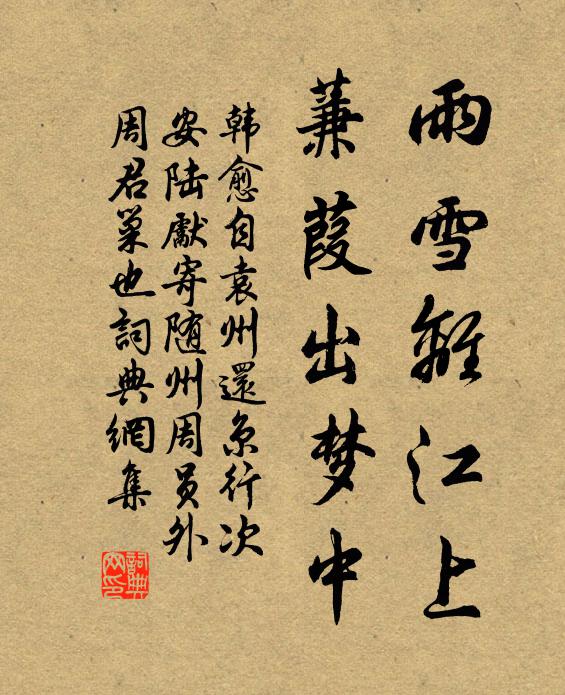 雨雪離江上
蒹葭出梦中
韩愈自袁州還京行次
安陆獻寄随州周員外
周君巢也詞典網集
詞典
网印